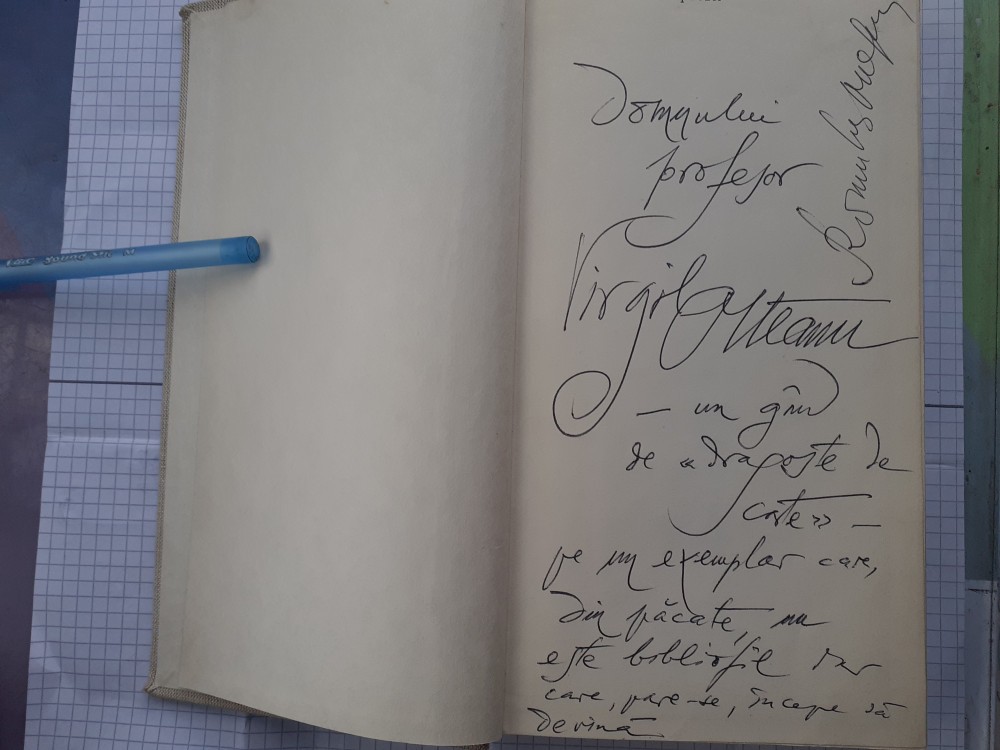 Domnului
profesor
Virgil Olteanu
— un gînd
de «dragoste de
carte» —
pe un exemplar care,
din păcate, nu
este bibliofil dar
care, pare-se, începe să
devină
Romulus